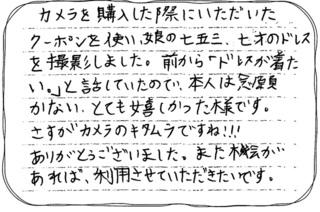 カメラを購入した際にいただいた
クーポンを使い、娘の七五三、七才のドレス
を撮影しました。前から「ドレスが着た
い。」と話していたので、本人は念願
かない、とても嬉しかった様です。
さすがカメラのキタムラですね!!!
ありがとうございました。また機会が
あれば、利用させていただきたいです。